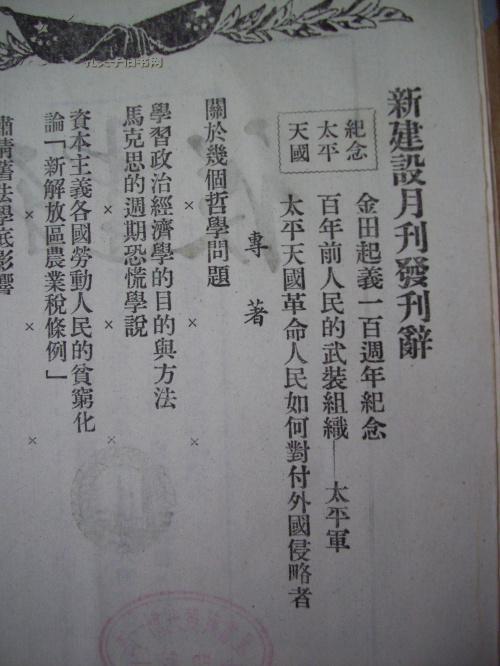 新建設月刊發刊辭
紀念
太平
天國
金田起義一百週年紀念
百年前人民的武裝組織——太平軍
太平天國革命人民如何對付外國侵略者
專著
關於幾個哲學問題
學習政治經濟學的目的與方法
馬克思的週期恐慌學說
資本主義各國勞動人民的貧窮化
論「新解放區農業稅條例」
肅清舊法學底影響
孔夫子旧书网